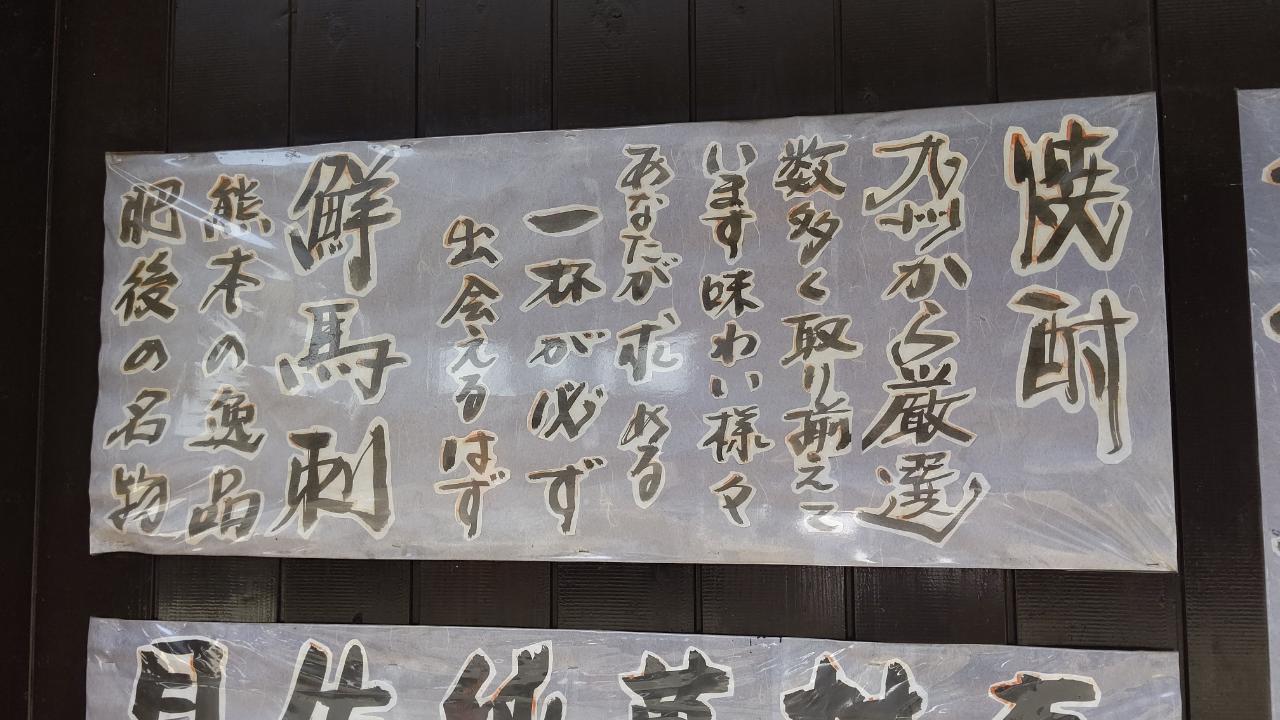 焼酎
九州から厳選
数多く取り揃えて
います味わい様々
あなたが求める
一杯が必ず
出会えるはず
鮮馬刺
熊本の逸品
肥後の名物